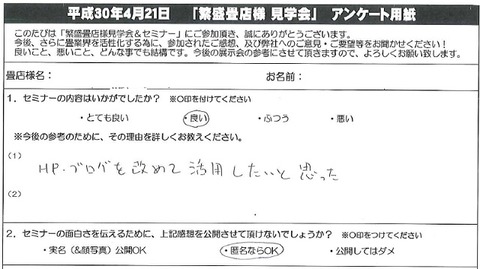 平成30年4月21日　「繁盛畳店様 見学会」　アンケート用紙
このたびは「繁盛畳店様見学会&セミナー」にご参加頂き、誠にありがとうございます。
今後、さらに畳業界を活性化する為に、参加されたご感想、及び弊社へのご意見・ご要望等をお聞かせください!
良いこと、悪いこと、どんな事でも結構です。今後の展示会の参考にさせて頂きますので、よろしくお願い致します。
畳店様名:　　　　お名前:
1. セミナーの内容はいかがでしたか?　※〇印を付けてください
・とても良い　・良い　・ふつう　・悪い
※今後の参考のために、その理由を詳しくお教えください。
(1)
HP・ブログを改めて活用したいと思った
(2)
2. セミナーの面白さを伝えるために、上記感想を公開させて頂けないでしょうか?　※〇印をつけてください
・実名(&顔写真)公開OK　・匿名ならOK　・公開してはダメ